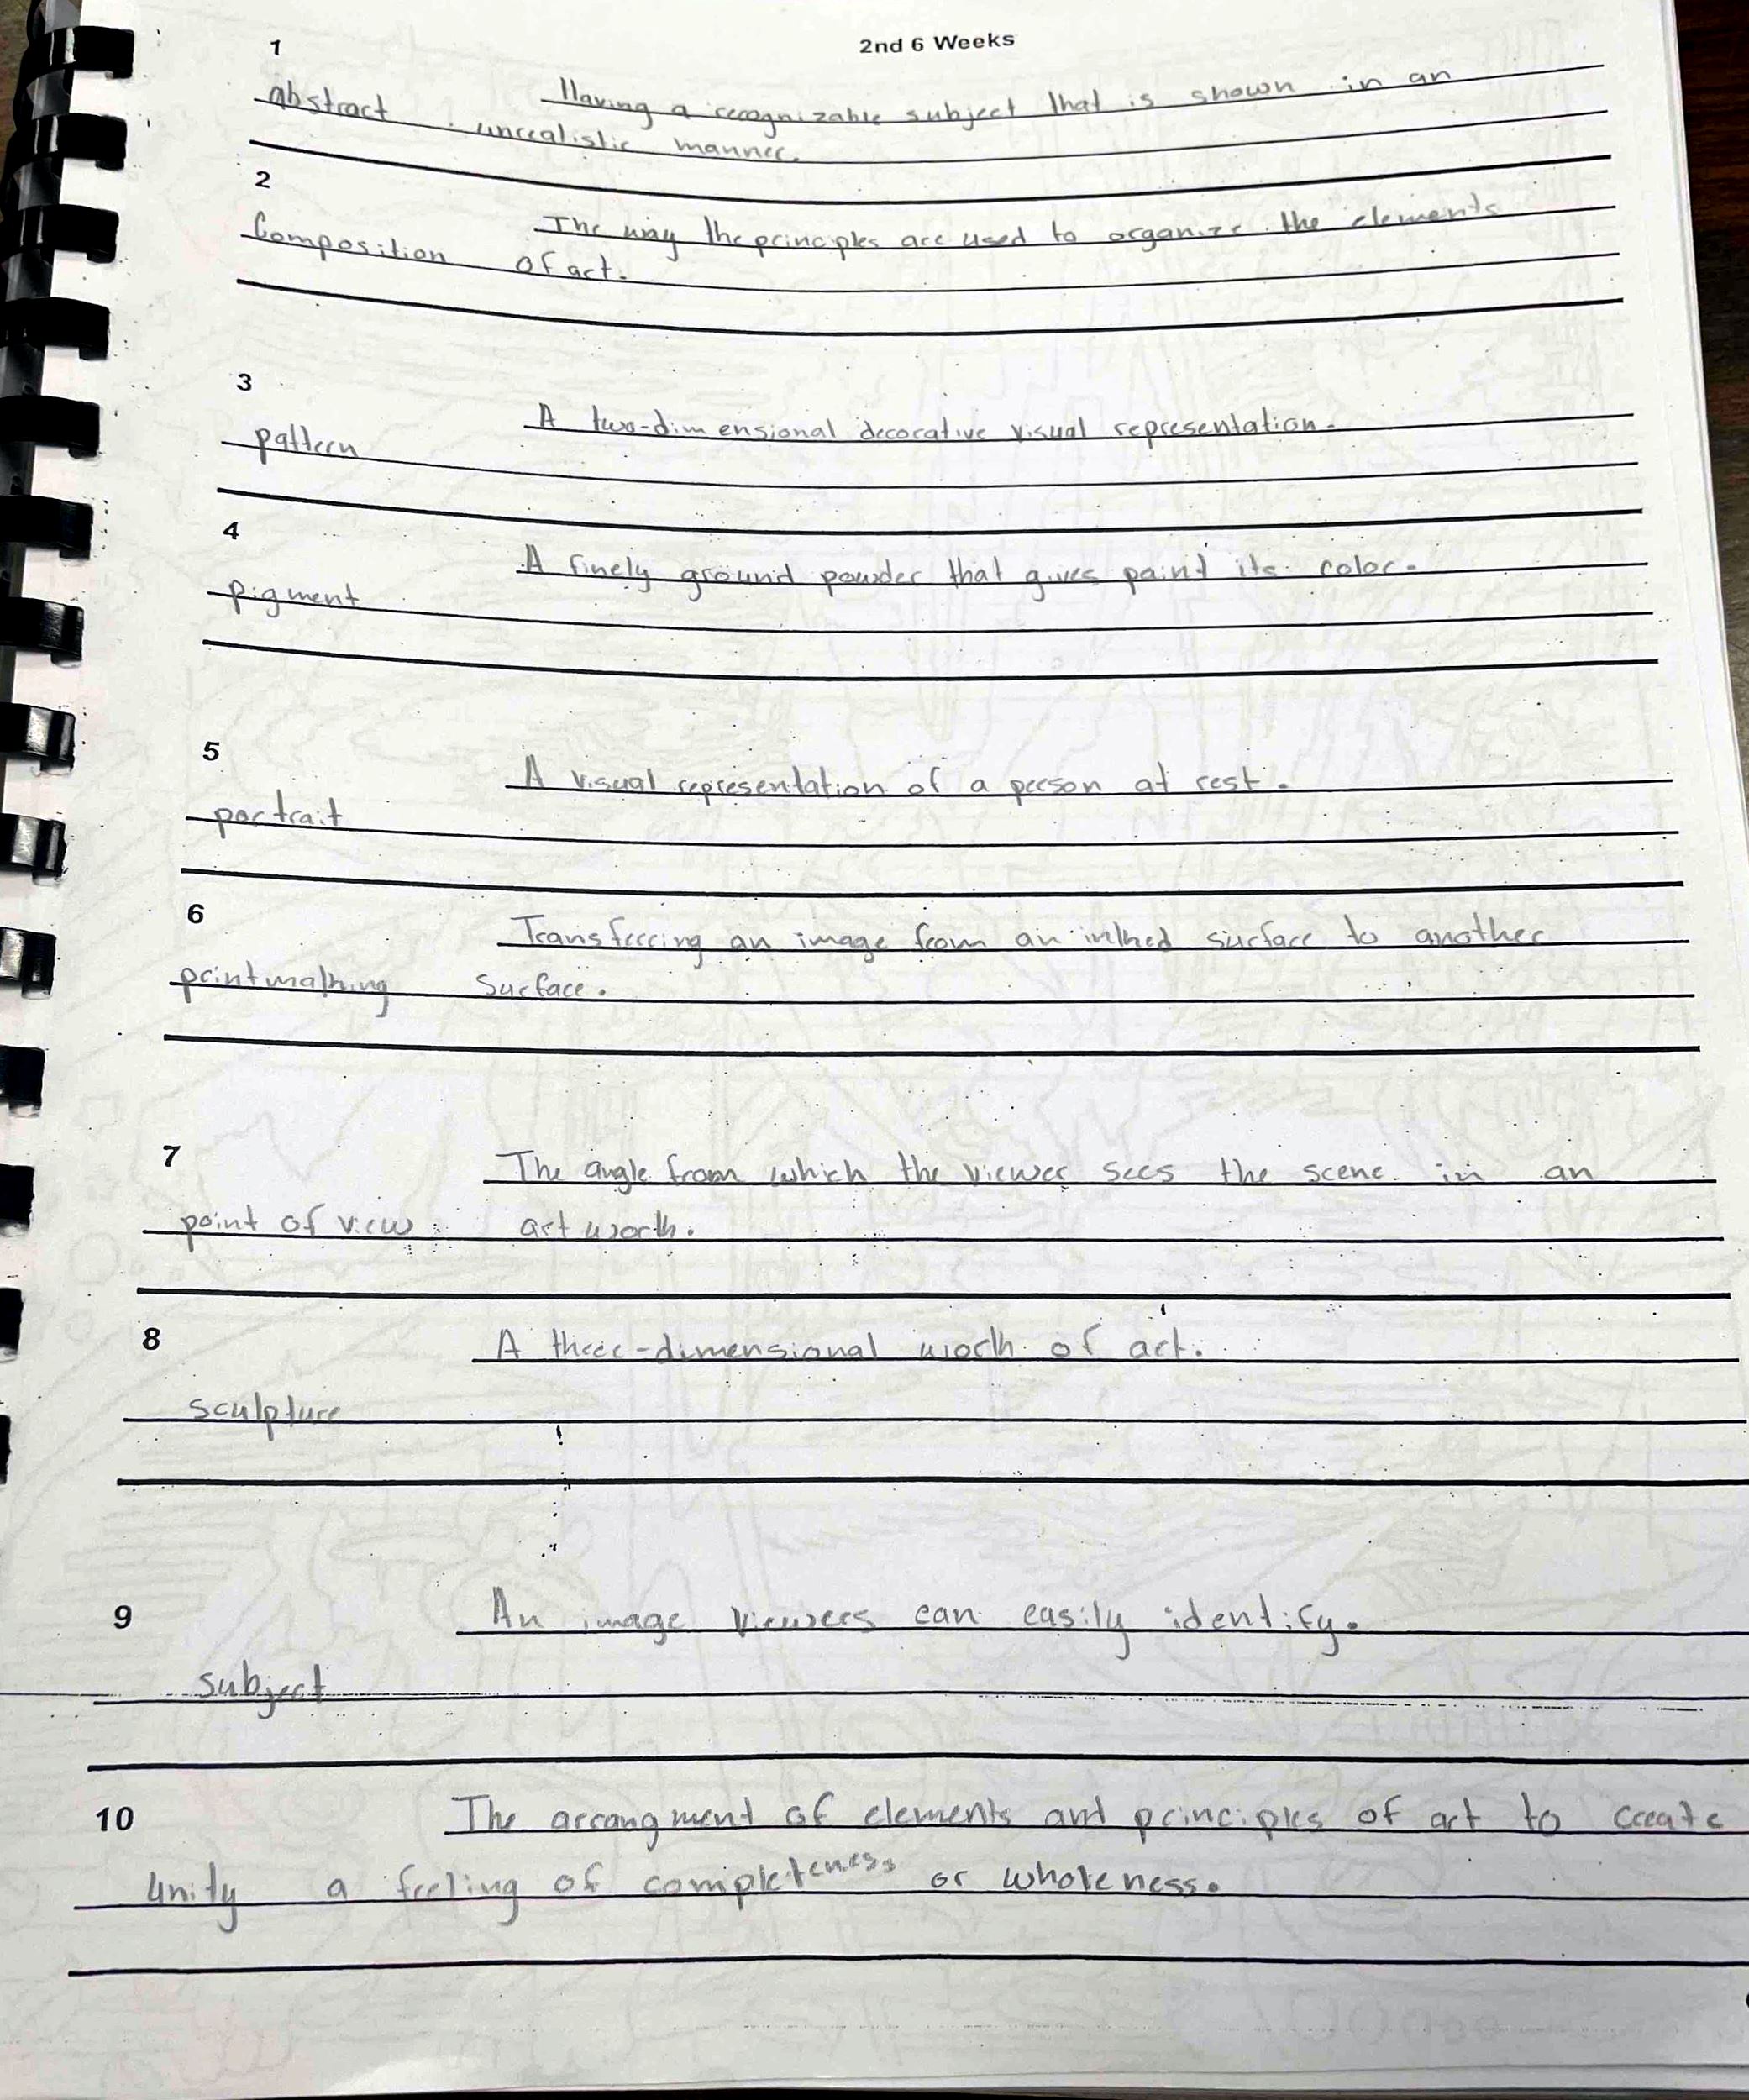 1
2nd 6 Weeks
abstract Having a recognizable subject that is shown in an
unrealistic manner.
2
Composition The way the principles are used to organize the elements
of art.
3
pattern A two-dimensional decorative visual representation.
4
pigment A finely ground powder that gives paint its color.
5
portrait A visual representation of a person at rest.
6
Transferring an image from an inked surface to another
printmaking surface.
7
The angle from which the viewer sees the scene in an
point of view artwork.
8
A three-dimensional work of art.
sculpture
9
An image viewers can easily identify.
subject
10
The arrangment of elements and principles of art to create
unity a feeling of completeness or wholeness.